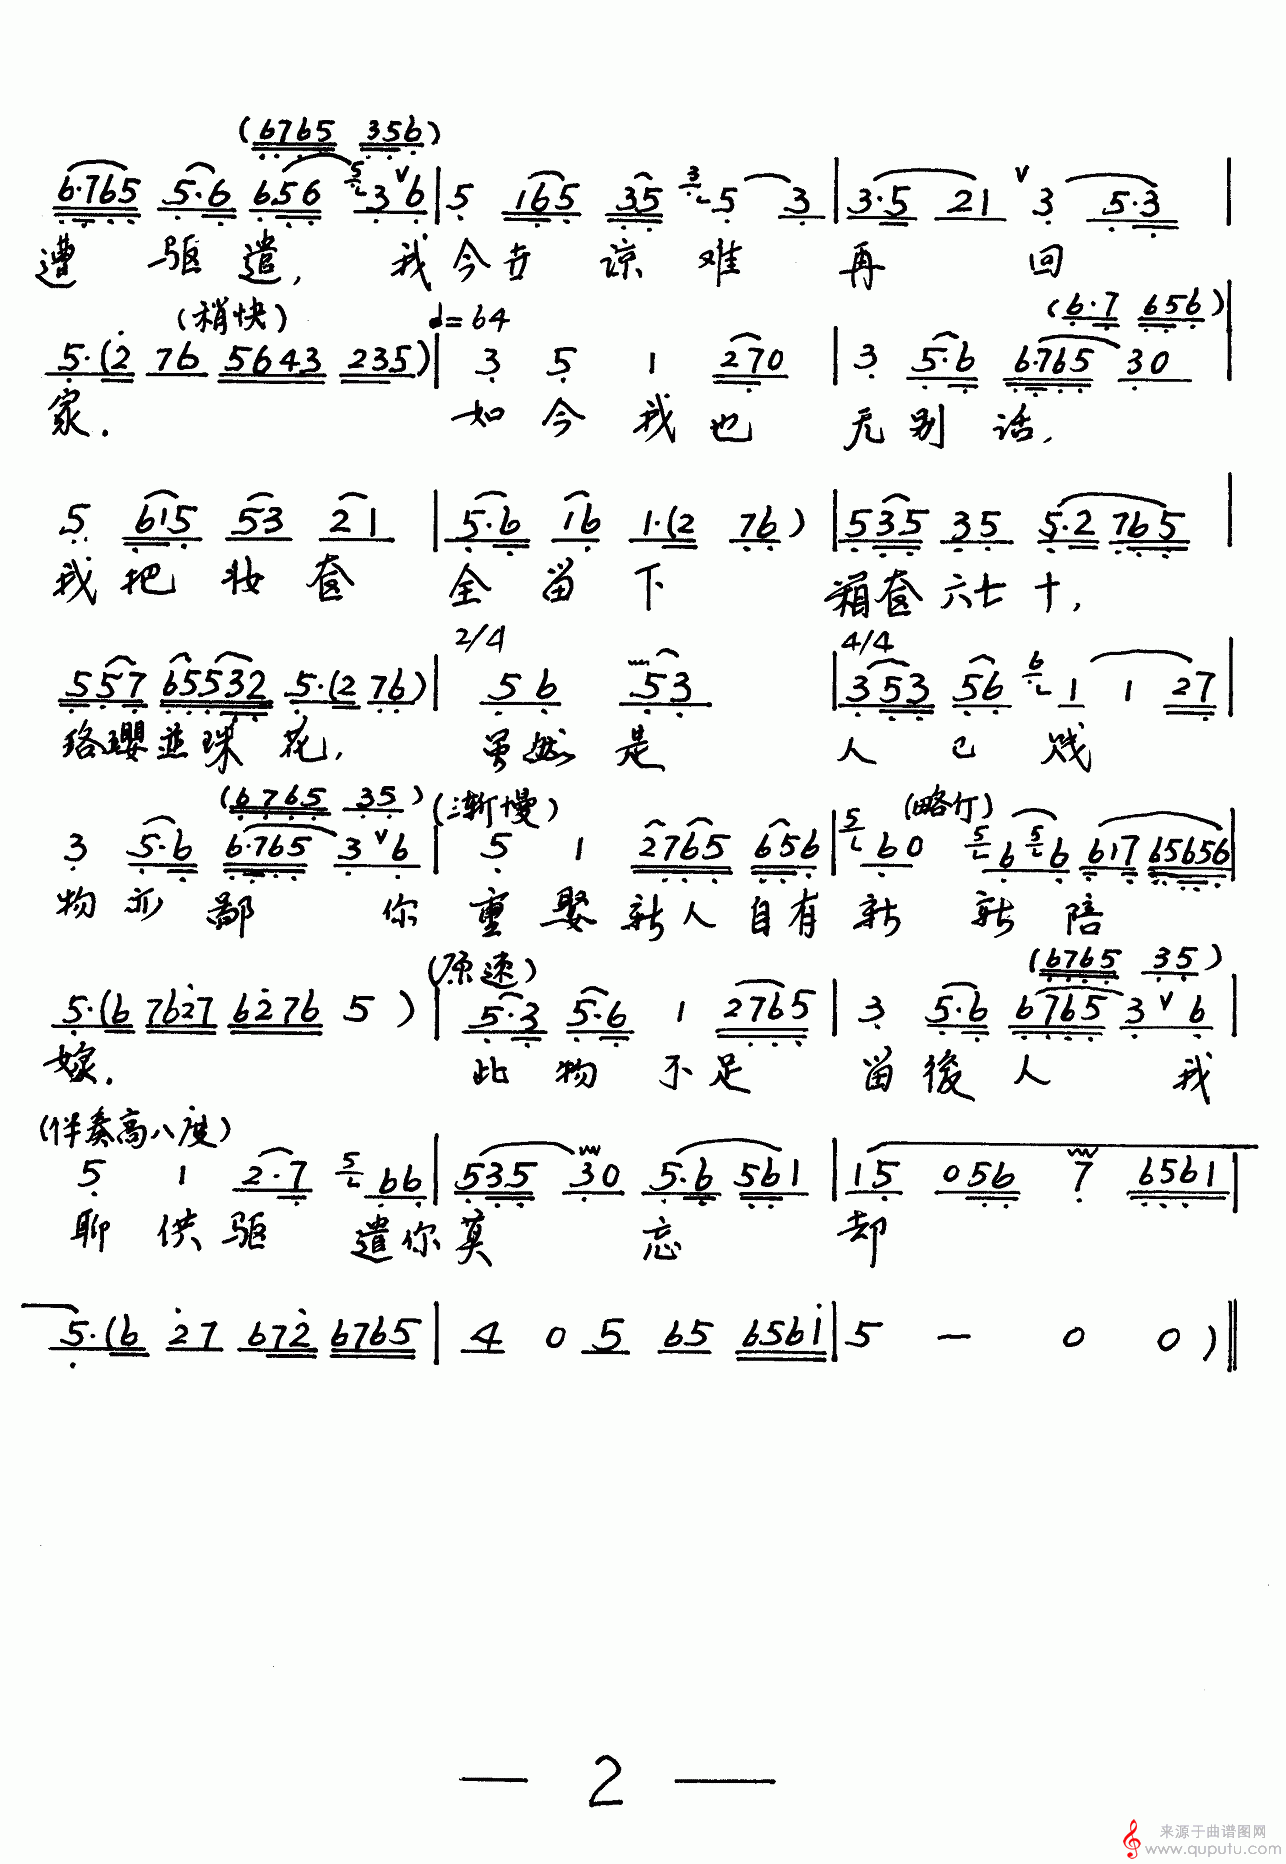 (6765 356)
6·765 5·6 656 5 3 ∨ 6 | 5 165 35 3 5 3 | 3·5 21 ∨ 3 5·3 |
遭 驱 遣, 我 今 谅 难 再 回
(稍快) ♩=64 (6·7 656)
5·(2 76 5643 235) | 3 5 1 270 | 3 5·6 6·765 30 |
家. 如 今 我 也 无 别 话,
5 615 53 21 | 5·6 16 1·(2 76) | 535 35 5·2 765 |
我 把 妆 奁 全 留 下 箱奁 六七 十,
2/4 4/4
557 655532 5·(2 76) | 56 53 | 353 56 6 1 1 27 |
珞璎並珠 花, 虽然 是 人 已 贱
(6765 35) (渐慢) (略佇)
3 5·6 6·765 3 ∨ 6 | 5 1 2765 656 | 5 60 5 6 5 6 617 65656 |
物 亦 鄙 你 重 娶 新 人 自 有 新 新 陪
(原速) (6765 35)
5·(6 7627 6276 5) | 5·3 5·6 1 2765 | 3 5·6 6765 3 ∨ 6 |
嫁. 此 物 不 足 留 後 人 我
(伴奏高八度)
5 1 2·7 5 66 | 535 30 5·6 561 | 15 056 7 6561 |
聊 供 驱 遣 你 莫 忘 却
5·(6 27 672 6765 | 4 0 5 65 6561 | 5 — 0 0) ‖
— 2 —
来源于曲谱图网
www.qupu​tu.com